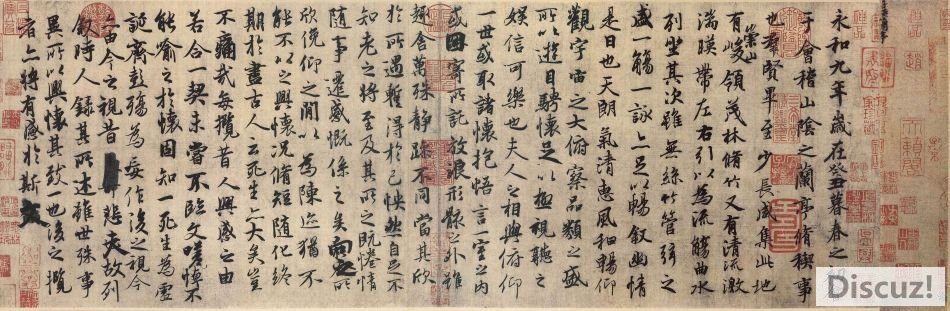 永和九年歲在癸丑暮春之
于會稽山陰之蘭亭脩稧事
也羣賢畢至少長咸集此地
有崇山峻領茂林脩竹又有清流激
湍暎帶左右引以為流觴曲水
列坐其次雖無絲竹管弦之
盛一觴一詠亦足以暢敘幽情
是日也天朗氣清惠風和暢仰
觀宇宙之大俯察品類之盛
所以遊目騁懷足以極視聽之
娛信可樂也夫人之相與俯仰
一世或取諸懷抱悟言一室之內
或因寄所託放浪形骸之外雖
趣舍萬殊靜躁不同當其欣
於所遇蹔得於己怏然自足不
知老之將至及其所之既惓情
隨事遷感慨係之矣向之所
欣俛仰之閒以為陳迹猶不
能不以之興懷況脩短隨化終
期於盡古人云死生亦大矣豈
不痛哉每攬昔人興感之由
若合一契未嘗不臨文嗟悼不
能喻之於懷固知一死生為虛
誕齊彭殤為妄作後之視今
亦由今之視昔悲夫故列
敘時人錄其所述雖世殊事
異所以興懷其致一也後之攬
者亦將有感於斯文
Discuz!